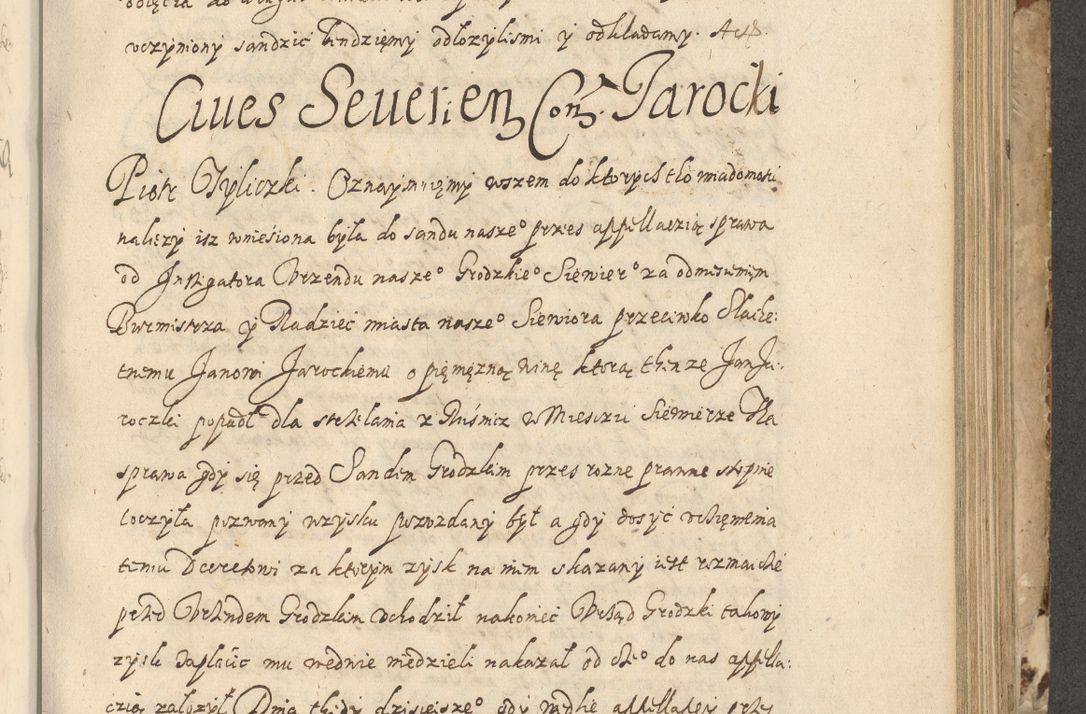 vczyniony sandzić bendziemy odłozylismi y odkładamy. Actp.
Ciues Seuerien Con. Jarocki
Piotr Tyliczki. Oznaymuięmy wszem do ktorych tho wiadomosci
nalezy isz wniesiona była do sandu nasze⁰ przes appellaczią sprawa
od Instigatora Vrzendu nasze⁰ Grodzkie⁰ Siewier⁰ za odniesieniem
Burmistrza y Radziec miasta nasze⁰ Siewiora przeciwko Slache:
tnemu Janowi Jarockiemu o pięniężną winę ktorą thenze Jan Ja:
roczki popadł dla strzelania z Rusnicz w Miesczi Siewierze Tha
sprawa gdy się przed Sandem Grodzkim przes rozne prawne stopnie
toczyła pozwany wzysku pozozdany był a gdy dosyć vczięnienia
temu Decretowi za ktorym zysk na nim skazany iest rozmaicie
przed Vrzendem Grodzkim vchodził nakoniec Vrząd Grodzki takowy
zysk zaplacic mu wednie niedzieli nakazał od cze⁰ do nas appella:
czią założył Dnia thedy dzisieisze⁰ gdy